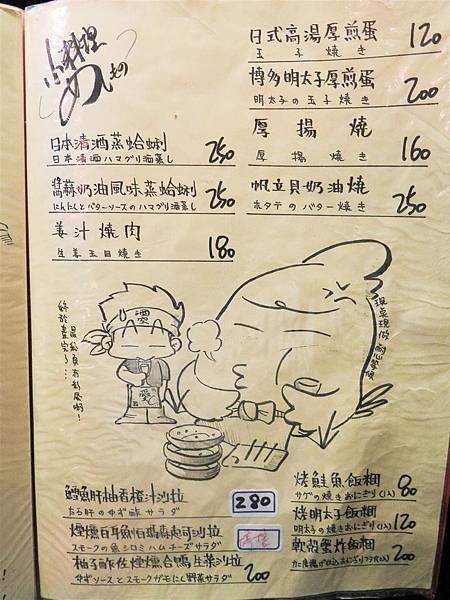 小料理
めにゅ
日本清酒蒸蛤蜊 250
日本清酒ハマグリ酒蒸し
醬蒜奶油風味蒸蛤蜊 250
にんにくとバターソースのハマグリ酒蒸し
姜汁燒肉 180
日式高湯厚煎蛋 120
玉子焼き
博多明太子厚煎蛋 200
明太子の玉子焼き
厚揚燒 160
厚揚焼き
帆立貝奶油燒 250
ホタテのバター焼き
現點現做
鱈魚肝柚香橙汁沙拉 280
たら肝のゆず酢サラダ
スモークの魚シロミハムチーズサラダ
柚子酢佐煙燻合鴨生菜沙拉 200
ゆずソースとスモークガモに野菜サラダ
烤鮭魚飯糰 80
サケの焼きおにぎり(1入)
燒明太子飯糰 120
明太子の焼きおにぎり(1入)
軟殼蟹炸飯糰 200